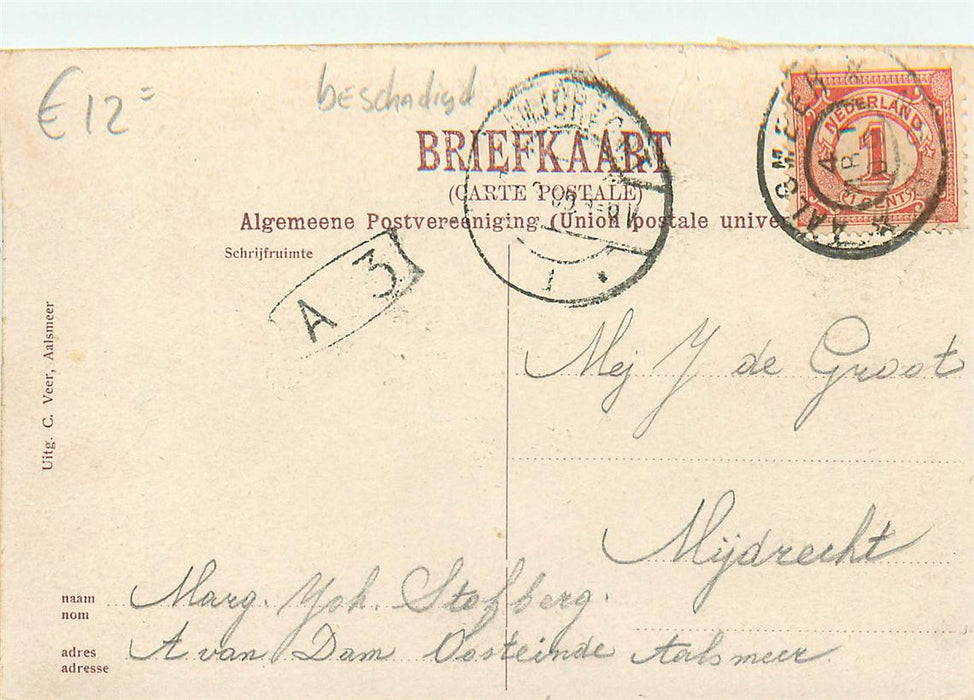 € 12=
beschadigd
BRIEFKAART
(CARTE POSTALE)
Algemeene Postvereeniging (Union postale unive
Schrijfruimte
NEDERLAND
1
CENT
AALSMEER
MIJDREC
1
A 3
Uitg. C. Veer, Aalsmeer
Mej J de Groot
Mijdrecht
naam
nom
Marg. Joh. Stofberg.
adres
adresse
A van Dam Oosteinde Aalsmeer.